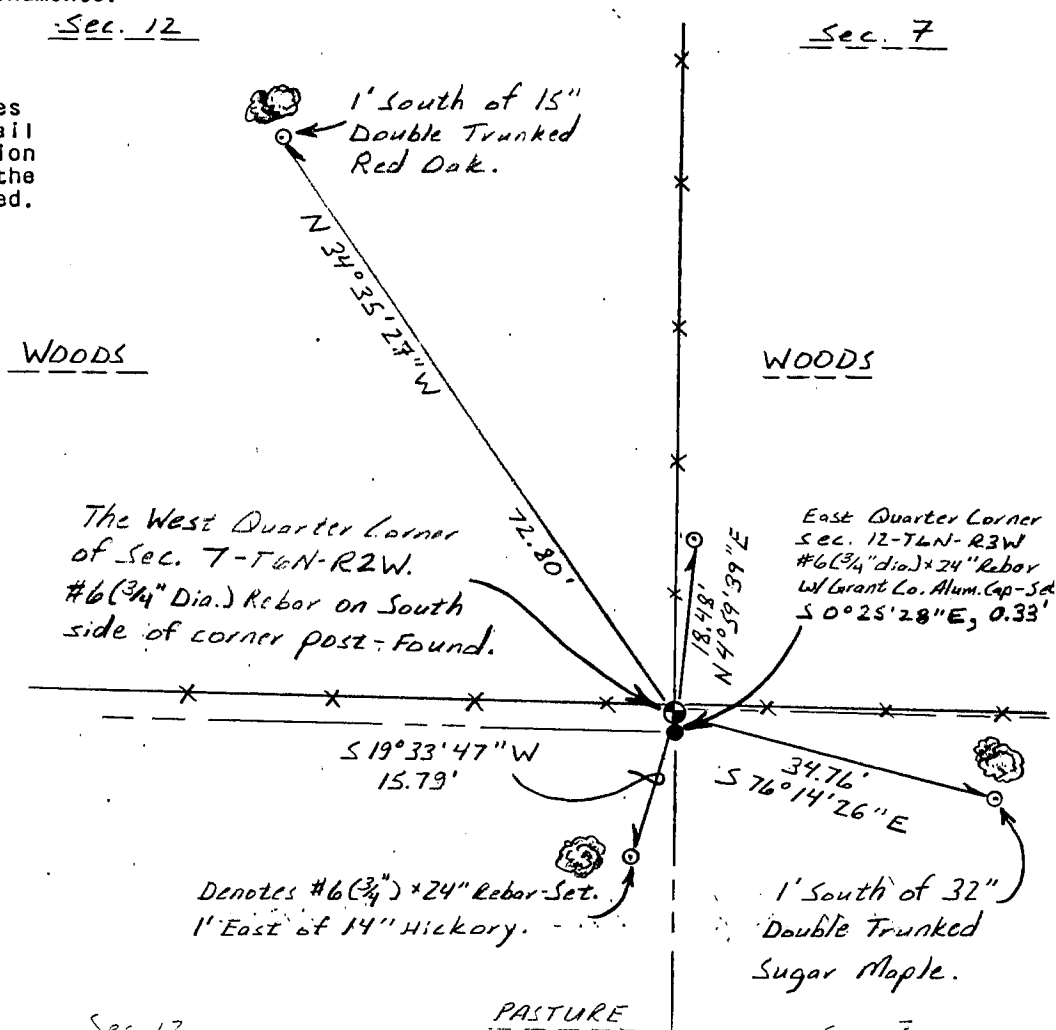 Sec. 12
Sec. 7
ail
ion
the
ed.
1' South of 15"
Double Trunked
Red Oak.
N 34°35'27"W
72.80'
WOODS
WOODS
The West Quarter Corner
of Sec. 7-T6N-R2W.
#6(3/4" Dia.) Rebar on South
side of corner post-Found.
18.48'
N 4°59'39"E
East Quarter Corner
Sec. 12-T6N-R3W
#6(3/4" dia.)x24" Rebar
W/Grant Co. Alum. Cap-Set
S 0°25'28"E, 0.33'
S 19°33'47"W
15.79'
34.76'
S 76°14'26"E
Denotes #6(3/4")x24" Rebar-Set.
1' East of 14" Hickory.
1' South of 32"
Double Trunked
Sugar Maple.
PASTURE
Sec. 12